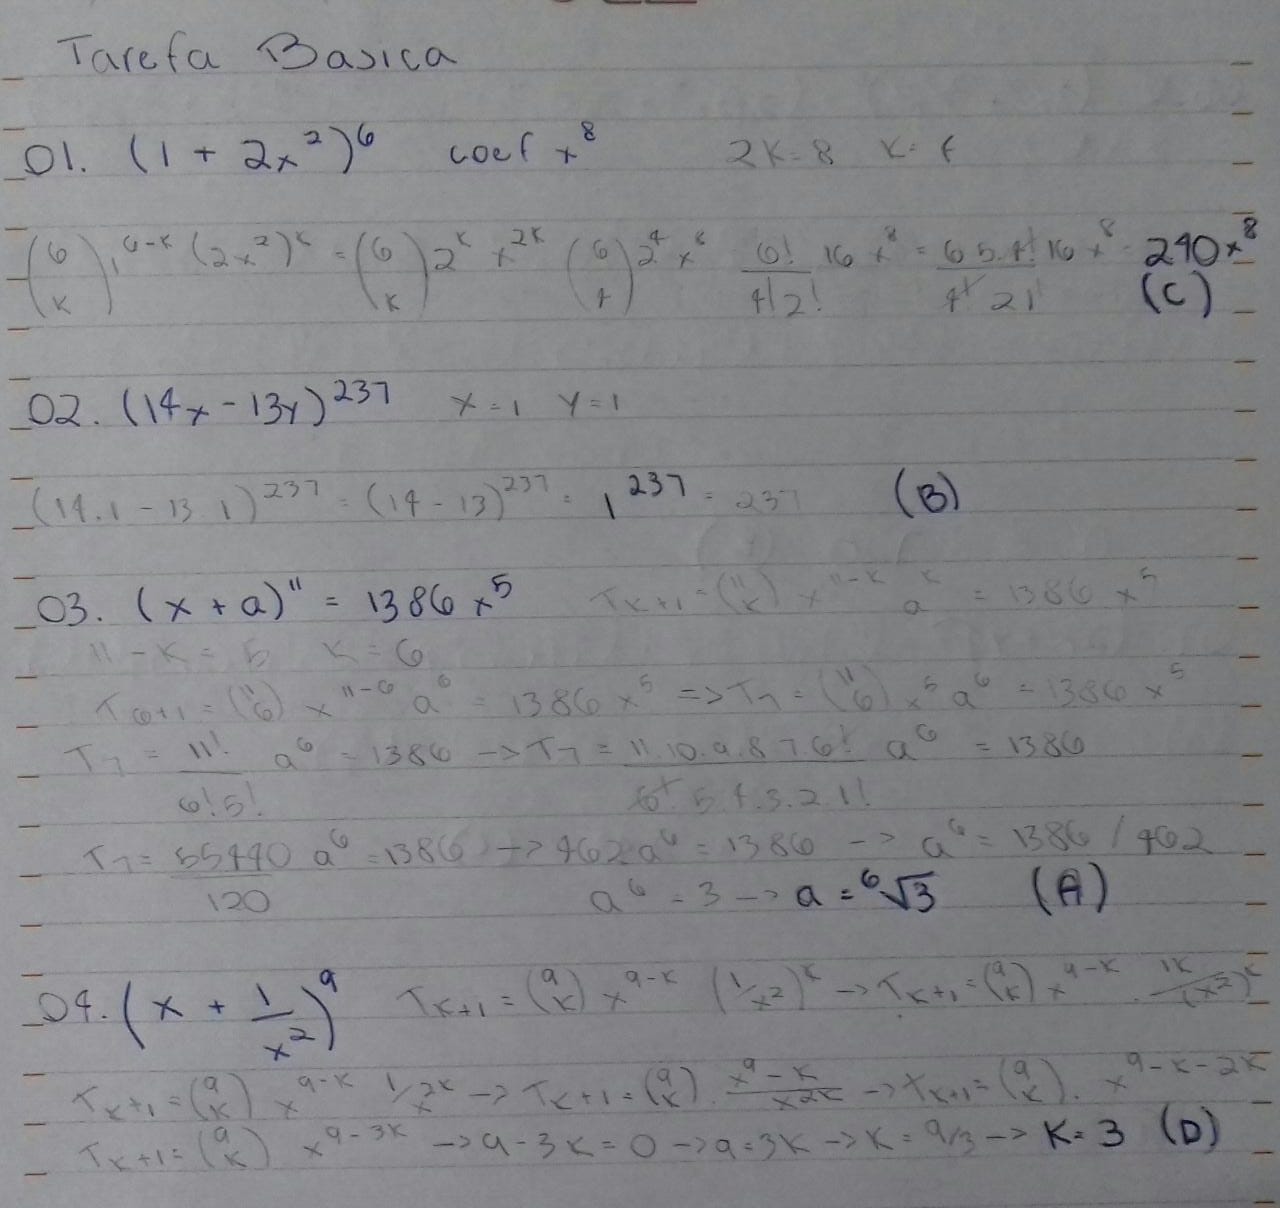 Tarefa Basica
01. (1 + 2x²)⁶ coef x⁸ 2K=8 K=4
(6 K) 1⁶⁻ᴷ (2x²)ᴷ = (6 K) 2ᴷ x²ᴷ (6 4) 2⁴ x⁸ 6!/4!2! 16 x⁸ = 6.5.4!/4!2! 16 x⁸ = 240x⁸ (C)
02. (14x - 13y)²³⁷ x=1 y=1
(14.1 - 13.1)²³⁷ = (14 - 13)²³⁷ = 1²³⁷ = 237 (B)
03. (x + a)¹¹ = 1386x⁵ Tᴋ₊₁ = (11 K) x¹¹⁻ᴷ aᴷ = 1386 x⁵
11 - K = 5 K = 6
T₆₊₁ = (11 6) x¹¹⁻⁶ a⁶ = 1386 x⁵ => T₇ = (11 6) x⁵ a⁶ = 1386 x⁵
T₇ = 11!/6!5! a⁶ = 1386 -> T₇ = 11.10.9.8.7.6!/6!5.4.3.2.1! a⁶ = 1386
T₇ = 55440/120 a⁶ = 1386 -> 462a⁶ = 1386 -> a⁶ = 1386 / 462
a⁶ = 3 -> a = ⁶√3 (A)
04. (x + 1/x²)⁹ Tᴋ₊₁ = (9 K) x⁹⁻ᴷ (1/x²)ᴷ -> Tᴋ₊₁ = (9 K) x⁹⁻ᴷ . 1ᴷ/(x²)ᴷ
Tᴋ₊₁ = (9 K) x⁹⁻ᴷ 1/x²ᴷ -> Tᴋ₊₁ = (9 K) . x⁹⁻ᴷ/x²ᴷ -> Tᴋ₊₁ = (9 K) . x⁹⁻ᴷ⁻²ᴷ
Tᴋ₊₁ = (9 K) x⁹⁻³ᴷ -> 9-3K = 0 -> 9=3K -> K = 9/3 -> K=3 (D)